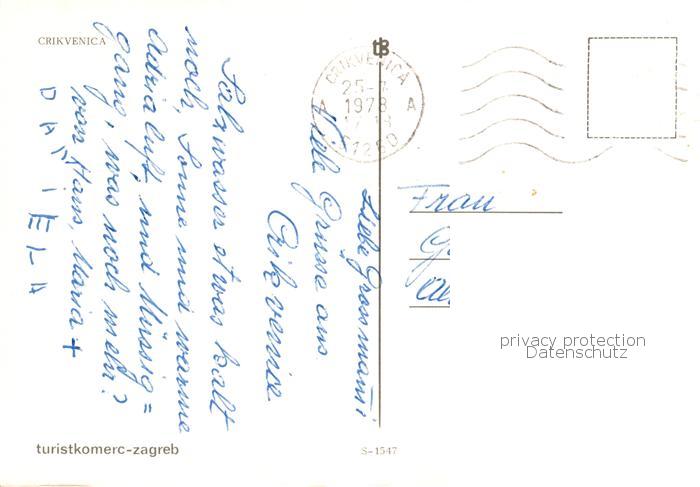 CRIKVENICA
CRIKVENICA
25-7
1978
A A
51260
Liebe Grossmutti
Viele Grüsse aus
Crikvenica
Salzwasser etwas kalt
noch, Sonne und warme
Adrialuft, und Müssig=
gang, was noch mehr?
von Hans, Maria +
DANIELA
Frau
G
privacy protection
Datenschutz
turistkomerc-zagreb
S-1547